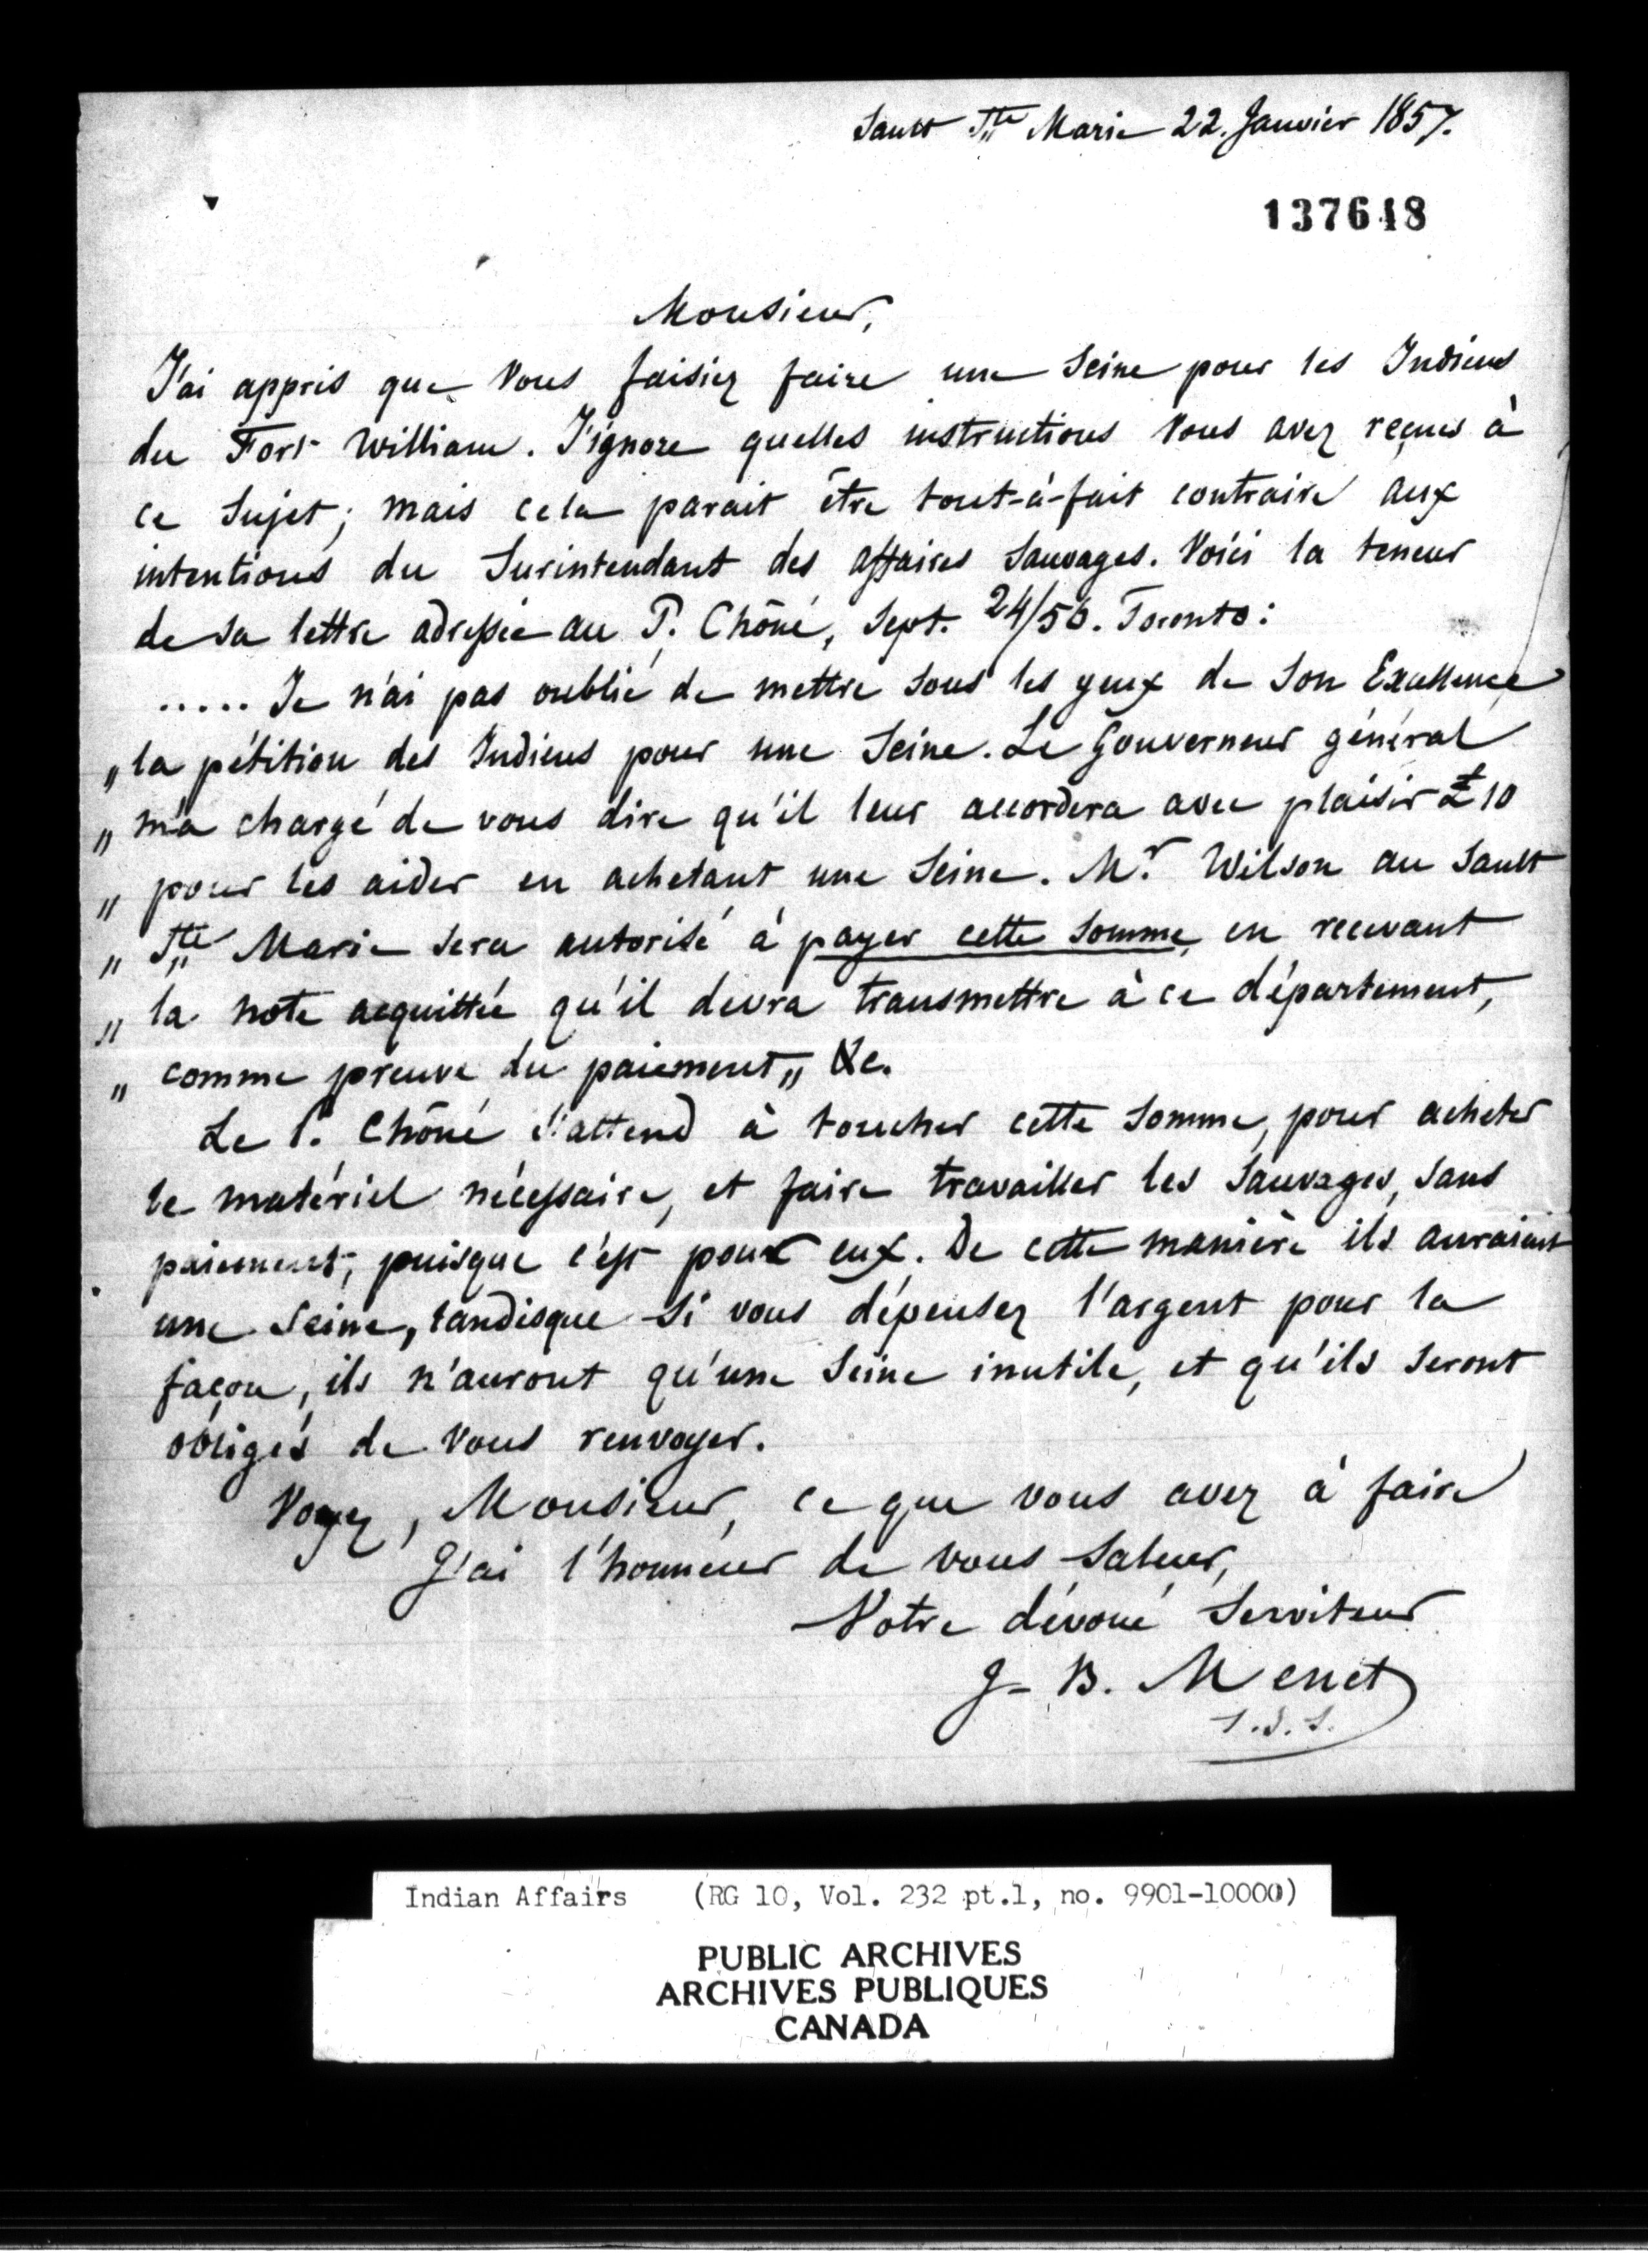 Sault Ste Marie 22. Janvier 1857.
137648
Monsieur,
J'ai appris que vous faisiez faire une Seine pour les Indiens
du Fort William. J'ignore quelles instructions vous avez reçues à
ce Sujet; mais cela parait être tout-à-fait contraire aux
intentions du Surintendant des affaires Sauvages. Voici la teneur
de sa lettre adressée au P. Chôné, Sept. 24/56. Toronto:
..... Je n'ai pas oublié de mettre sous les yeux de Son Excellence
„ la pétition des Indiens pour une Seine. Le Gouverneur général
„ m'a chargé de vous dire qu'il leur accordera avec plaisir £10
„ pour les aider en achetant une Seine. Mr. Wilson au Sault
„ Ste Marie sera autorisé à payer cette somme, en recevant
„ la note acquittée qu'il devra transmettre à ce département,
„ comme preuve du paiement„ &c.
Le P. Chôné s'attend à toucher cette somme, pour acheter
le matériel nécessaire, et faire travailler les Sauvages, sans
paiement, puisque c'est pour eux. De cette manière ils auraient
une Seine, tandisque si vous dépensez l'argent pour la
façon, ils n'auront qu'une Seine inutile, et qu'ils seront
obligés de vous renvoyer.
Voyez, Monsieur, ce que vous avez à faire
J'ai l'honneur de vous saluer,
Votre dévoué Serviteur
J-B. Menet
S.J.
Indian Affairs (RG 10, Vol. 232 pt.1, no. 9901-10000)
PUBLIC ARCHIVES
ARCHIVES PUBLIQUES
CANADA